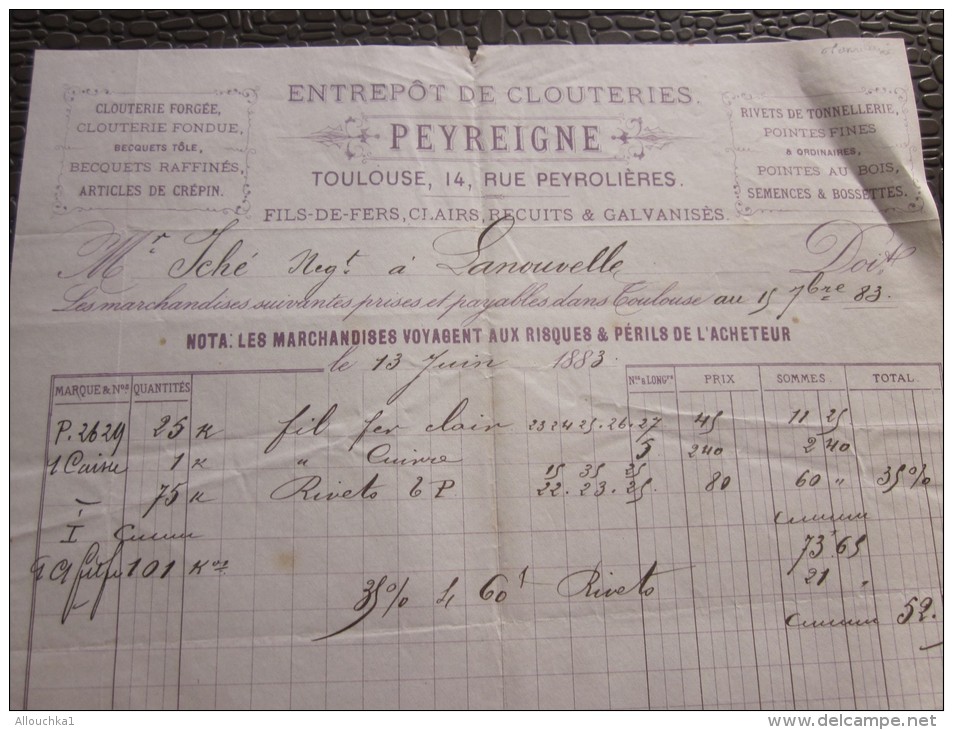 CLOUTERIE FORGÉE,
CLOUTERIE FONDUE,
BECQUETS TÔLE,
BECQUETS RAFFINÉS,
ARTICLES DE CRÉPIN.
ENTREPÔT DE CLOUTERIES.
PEYREIGNE
TOULOUSE, 14, RUE PEYROLIÈRES.
FILS-DE-FERS, CLAIRS, RECUITS & GALVANISÈS.
RIVETS DE TONNELLERIE,
POINTES FINES
& ORDINAIRES,
POINTES AU BOIS,
SEMENCES & BOSSETTES.
Mr Sché Negt à Lanouvelle Doit
Les marchandises suivantes prises et payables dans Toulouse au 15 7bre 83.
NOTA: LES MARCHANDISES VOYAGENT AUX RISQUES & PÉRILS DE L'ACHETEUR
le 13 Juin 1883.
MARQUE & Nos QUANTITÉS Nos & LONGrs PRIX SOMMES. TOTAL.
P. 2629 25 K fil fer clair 23 24 25. 26. 27 45 11 25
1 K " Cuivre 5 240 2 40
15 35 25
75 K Rivets 6 P. 22. 23. 25. 80 60 " 35%
73 65
101 Kos 21 "
35% s 60f Rivets
52.
Allouchka1
www.delcampe.net